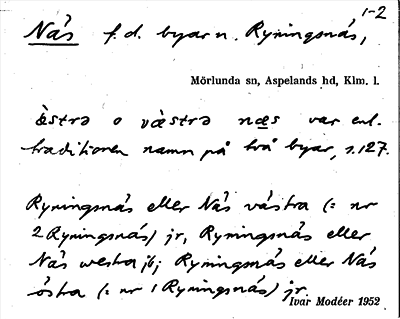 1-2
Näs f.d. byar n. Ryningsnäs,
Mörlunda sn, Aspelands hd, Klm. l.
ästrə o västrə næs var enl.
traditionen namn på två byar, s. 127.
Ryningsnäs eller Näs västra (= nr
2 Ryningsnäs) jr, Ryningsnäs eller
Näs westra jb; Ryningsnäs eller Näs
östra (= nr 1 Ryningsnäs) jr
Ivar Modéer 1952